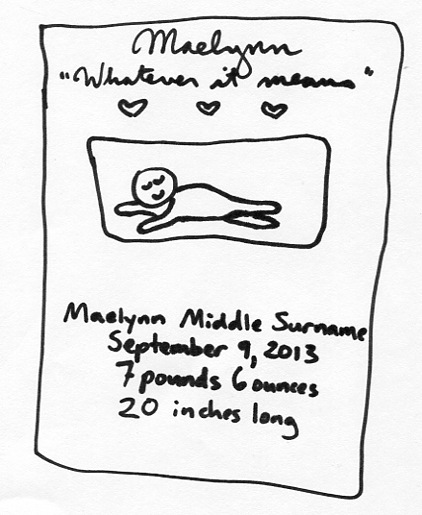 Maelynn
"Whatever it means"
Maelynn Middle Surname
September 9, 2013
7 pounds 6 ounces
20 inches long